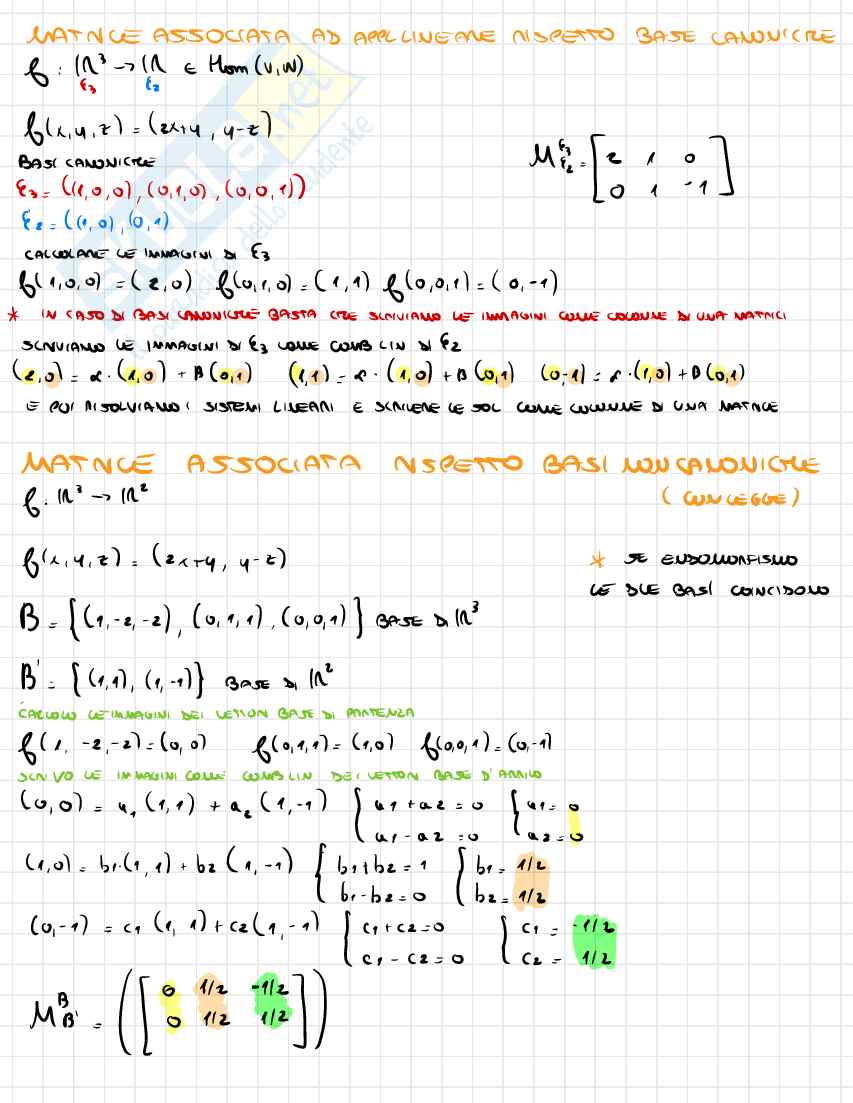 MATRICE ASSOCIATA AD APPL LINEARE RISPETTO BASE CANONICHE
f : ℝ³ → ℝ ∈ Hom (V, W)
ε₃ ε₂
f(x, y, z) = (2x+y, y-z)
BASI CANONICHE
M^ε₃_ε₂ = [2 1 0
0 1 -1]
ε₃ = ((1,0,0), (0,1,0), (0,0,1))
ε₂ = ((1,0), (0,1)
CALCOLARE LE IMMAGINI DI ε₃
f(1,0,0) = (2,0) f(0,1,0) = (1,1) f(0,0,1) = (0,-1)
* IN CASO DI BASI CANONICHE BASTA CHE SCRIVIAMO LE IMMAGINI COME COLONNE DI UNA MATRICI
SCRIVIAMO LE IMMAGINI DI ε₃ COME COMB LIN DI ε₂
(2,0) = α · (1,0) + β (0,1) (1,1) = α · (1,0) + β (0,1) (0-1) = α · (1,0) + β (0,1)
E POI RISOLVIAMO I SISTEMI LINEARI E SCRIVERE LE SOL COME COLONNE DI UNA MATRICE
MATRICE ASSOCIATA RISPETTO BASI NON CANONICHE
(CON LEGGE)
f : ℝ³ → ℝ²
f(x, y, z) = (2x+y, y-z)
* SE ENDOMORFISMO
LE DUE BASI COINCIDONO
B = {(1,-2,-2), (0,1,1), (0,0,1)} BASE DI ℝ³
B' = {(1,1), (1,-1)} BASE DI ℝ²
CALCOLO LE IMMAGINI DEI VETTORI BASE DI PARTENZA
f(1, -2,-2) = (0,0) f(0,1,1) = (1,0) f(0,0,1) = (0,-1)
SCRIVO LE IMMAGINI COME COMB LIN DEI VETTORI BASE D'ARRIVO
(0,0) = a₁ (1,1) + a₂ (1,-1) { a1 + a2 = 0 { a1 = 0
a1 - a2 = 0 a2 = 0
(1,0) = b₁·(1,1) + b₂ (1,-1) { b1 + b2 = 1 { b1 = 1/2
b1 - b2 = 0 b2 = 1/2
(0,-1) = c₁ (1,1) + c₂ (1,-1) { c1 + c2 = 0 { c1 = -1/2
c1 - c2 = 0 c2 = 1/2
M^B_B' = ([0 1/2 -1/2
0 1/2 1/2])